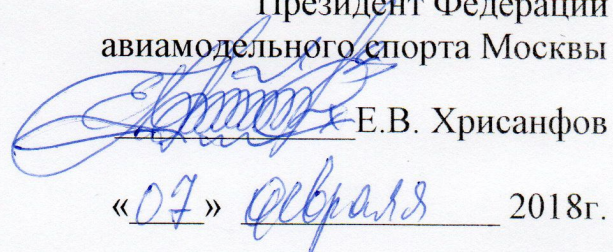 Президент Федерации
авиамодельного спорта Москвы
Е.В. Хрисанфов
«07» февраля 2018г.